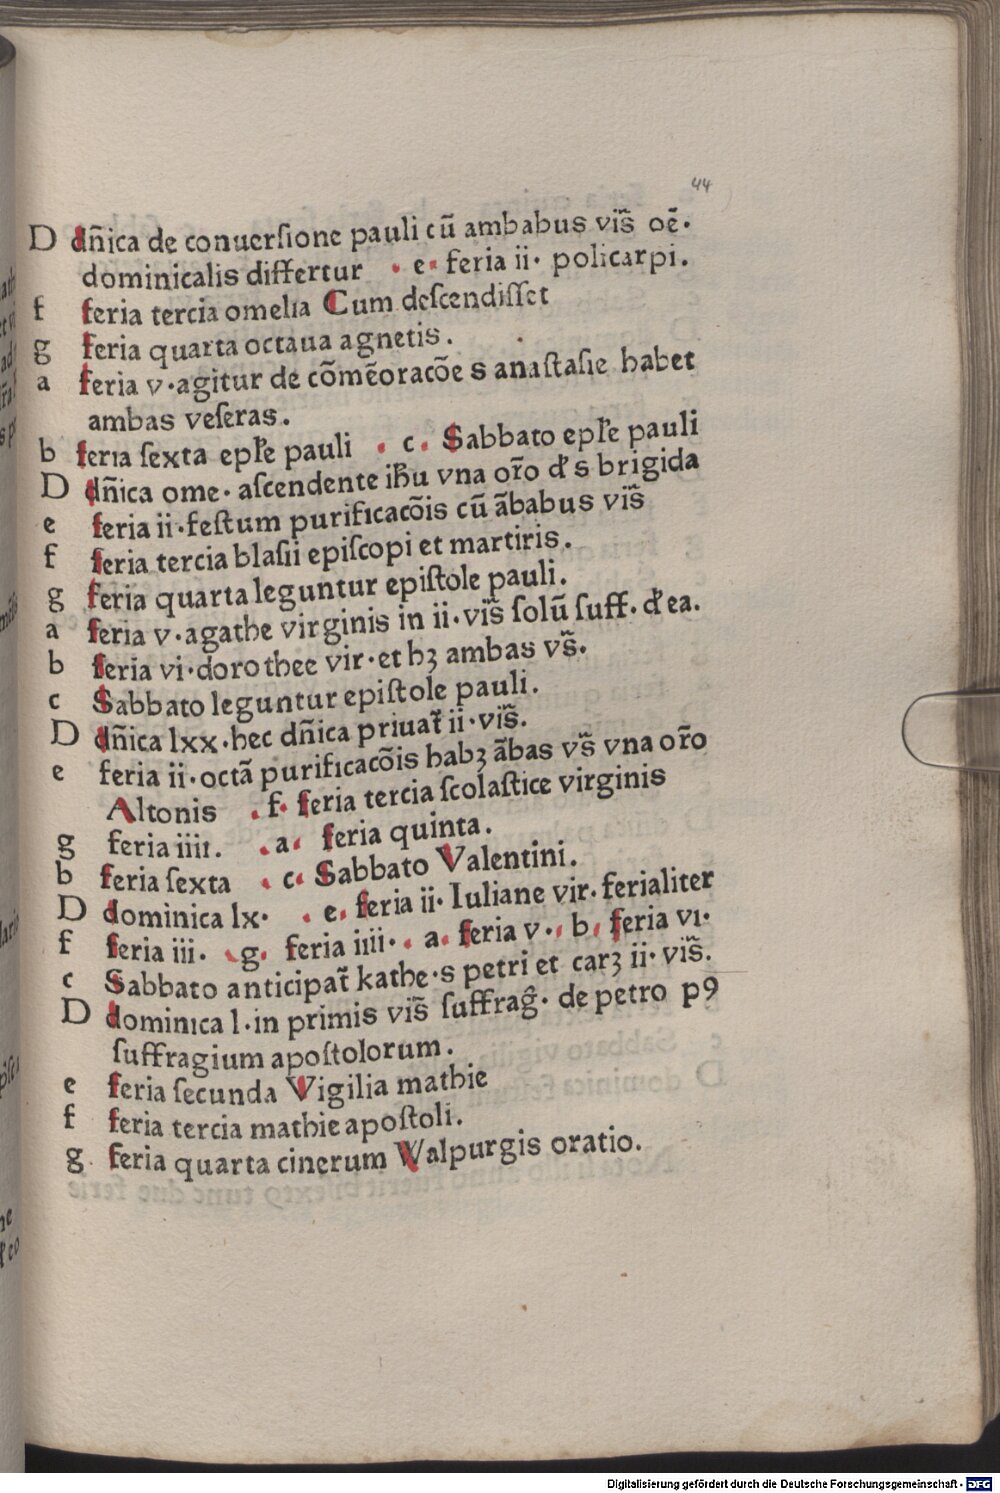 44
D dn̄ica de conuersione pauli cū ambabus vis̄ oē·
dominicalis differtur · e· feria ii· policarpi.
f feria tercia omelia Cum deſcendiſſet
g feria quarta octaua agnetis.
a feria v·agitur de cōmēoracōe s anaſtaſie habet
ambas veſeras.
b feria ſexta epl̄e pauli · c· Sabbato epl̄e pauli
D dn̄ica ome· aſcendente ih̄u vna or̄o d' s brigida
e feria ii·feſtum purificacōis cū ābabus vis̄
f feria tercia blaſii epiſcopi et martiris.
g feria quarta leguntur epiſtole pauli.
a feria v·agathe virginis in ii·vis̄ ſolū ſuff· d' ea.
b feria vi·dorothee vir·et hꝫ ambas vs̄.
c Sabbato leguntur epiſtole pauli.
D dn̄ica lxx·hec dn̄ica priuat̄ ii·vis̄.
e feria ii·octā purificacōis habꝫ ābas vs̄ vna or̄o
Altonis · f· feria tercia ſcolaſtice virginis
g feria iiii. · a· feria quinta.
b feria ſexta · c· Sabbato Valentini.
D dominica lx· · e· feria ii· Iuliane vir· ferialiter
f feria iii· · g· feria iiii· · a· feria v· · b· feria vi·
c Sabbato anticipat̄ kathe·s petri et carꝫ ii·vis̄.
D dominica l·in primis vis̄ ſuffraḡ· de petro pꝯ
ſuffragium apoſtolorum.
e feria ſecunda Vigilia mathie
f feria tercia mathie apoſtoli.
g feria quarta cinerum Walpurgis oratio.
Digitalisierung gefördert durch die Deutsche Forschungsgemeinschaft - DFG